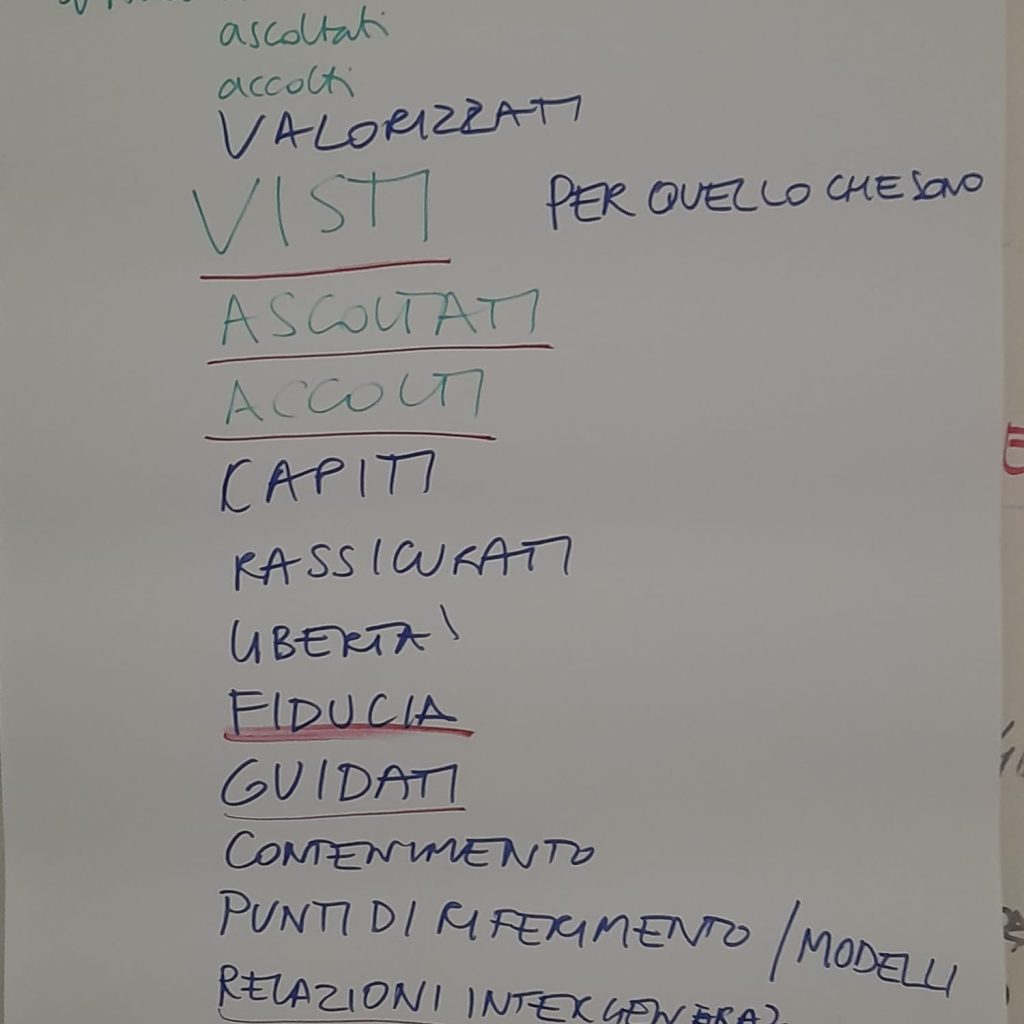 ascoltati
accolti
VALORIZZATI
VISTI PER QUELLO CHE SONO
ASCOLTATI
ACCOLTI
CAPITI
RASSICURATI
LIBERTA'
FIDUCIA
GUIDATI
CONTENIMENTO
PUNTI DI RIFERIMENTO / MODELLI
RELAZIONI